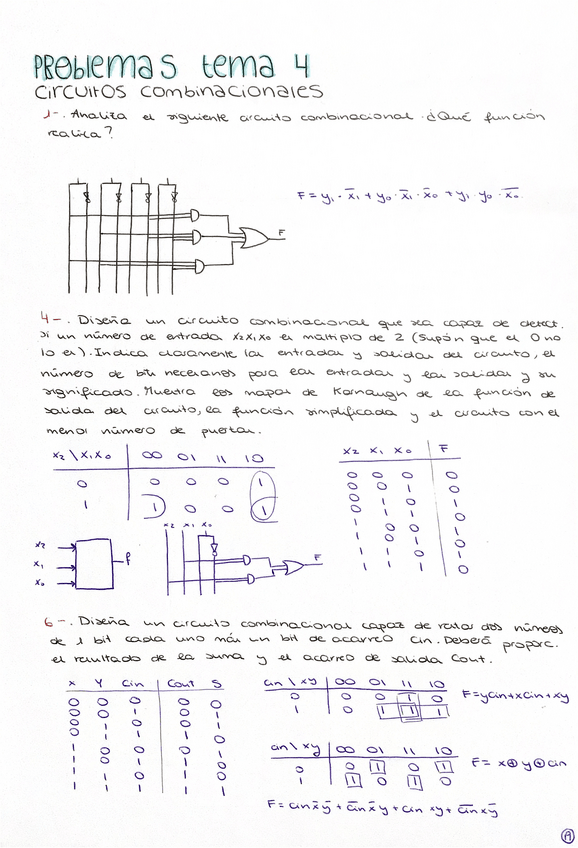 PROBLEMAS tema 4
CIRCUITOS COMBINACIONALES
1-. Analiza el siguiente circuito combinacional. ¿Qué función
realiza?
F = y₁ · x̄₁ + y₀ · x̄₁ · x̄₀ + y₁ · y₀ · x̄₀
F
4-. Diseña un circuito combinacional que sea capaz de detect.
si un número de entrada x₂x₁x₀ es múltiplo de 2 (supón que el 0 no
lo es). Indica claramente las entradas y salidas del circuito, el
número de bits necesarios para las entradas y las salidas y su
significado. Muestra los mapas de Karnaugh de la función de
salida del circuito, la función simplificada y el circuito con el
menor número de puertas.
x₂ \ x₁x₀ 00 01 11 10
0 0 0 0 1
1 1 0 0 1
x₂ x₁ x₀ F
0 0 0 0
0 0 1 0
0 1 0 1
0 1 1 0
1 0 0 1
1 0 1 0
1 1 0 1
1 1 1 0
x₂
x₁
x₀
f
x₂ x₁ x₀
F
6-. Diseña un circuito combinacional capaz de restar dos números
de 1 bit cada uno más un bit de acarreo cin. Deberá proporc.
el resultado de la suma y el acarreo de salida Cout.
x y Cin Cout S
0 0 0 0 0
0 0 1 0 1
0 1 0 0 1
0 1 1 1 0
1 0 0 0 1
1 0 1 1 0
1 1 0 1 0
1 1 1 1 1
cin \ xy 00 01 11 10
0 0 0 1 0
1 0 1 1 1
F=ycin+xcin+xy
cin \ xy 00 01 11 10
0 0 1 0 1
1 1 0 1 0
F= x⊕y⊕cin
F= cin x̄ȳ + c̄in x̄y + cin xy + c̄in xȳ
A